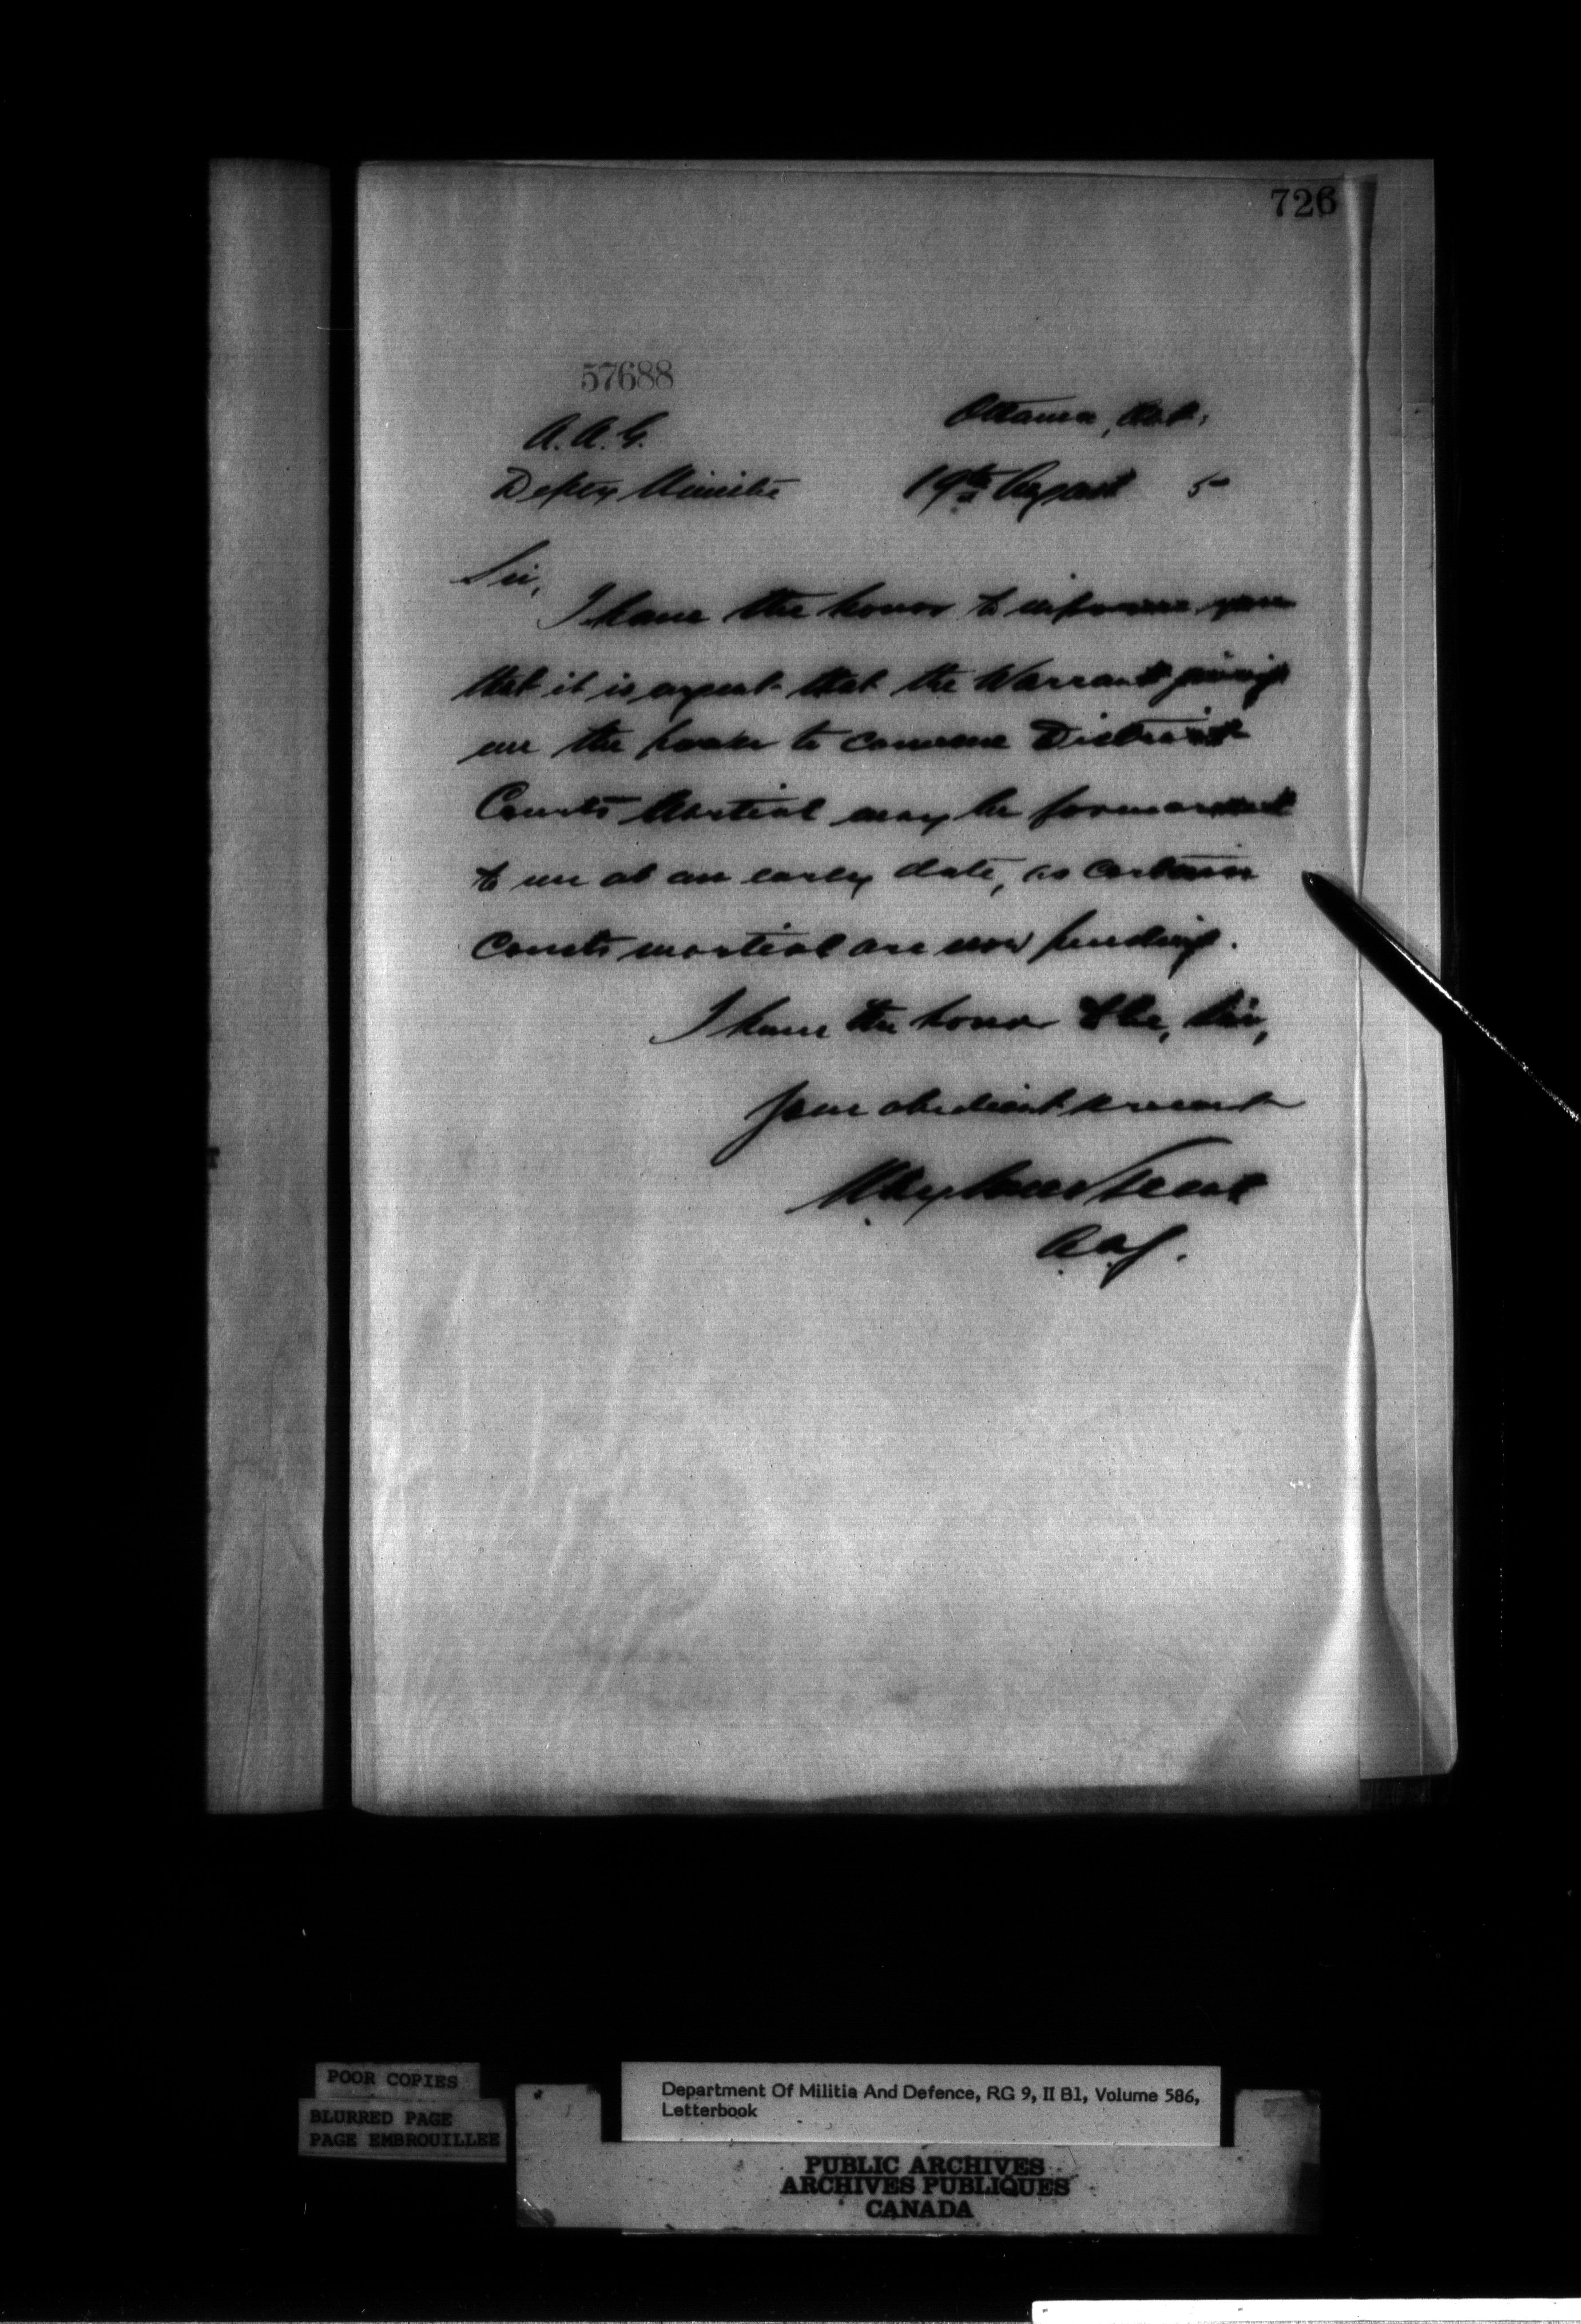 726
57688
A.A.G.
Ottawa, Ont:
Deputy Minister
19th August 5
Sir,
I have the honor to inform you
that it is urgent that the Warrant giving
me the power to convene District
Courts Martial may be forwarded
to me at an early date, as certain
Courts martial are now pending.
I have the honor to be, Sir,
Your obedient servant
A.A.G.
POOR COPIES
BLURRED PAGE
PAGE EMBROUILLEE
Department Of Militia And Defence, RG 9, II B1, Volume 586,
Letterbook
PUBLIC ARCHIVES
ARCHIVES PUBLIQUES
CANADA